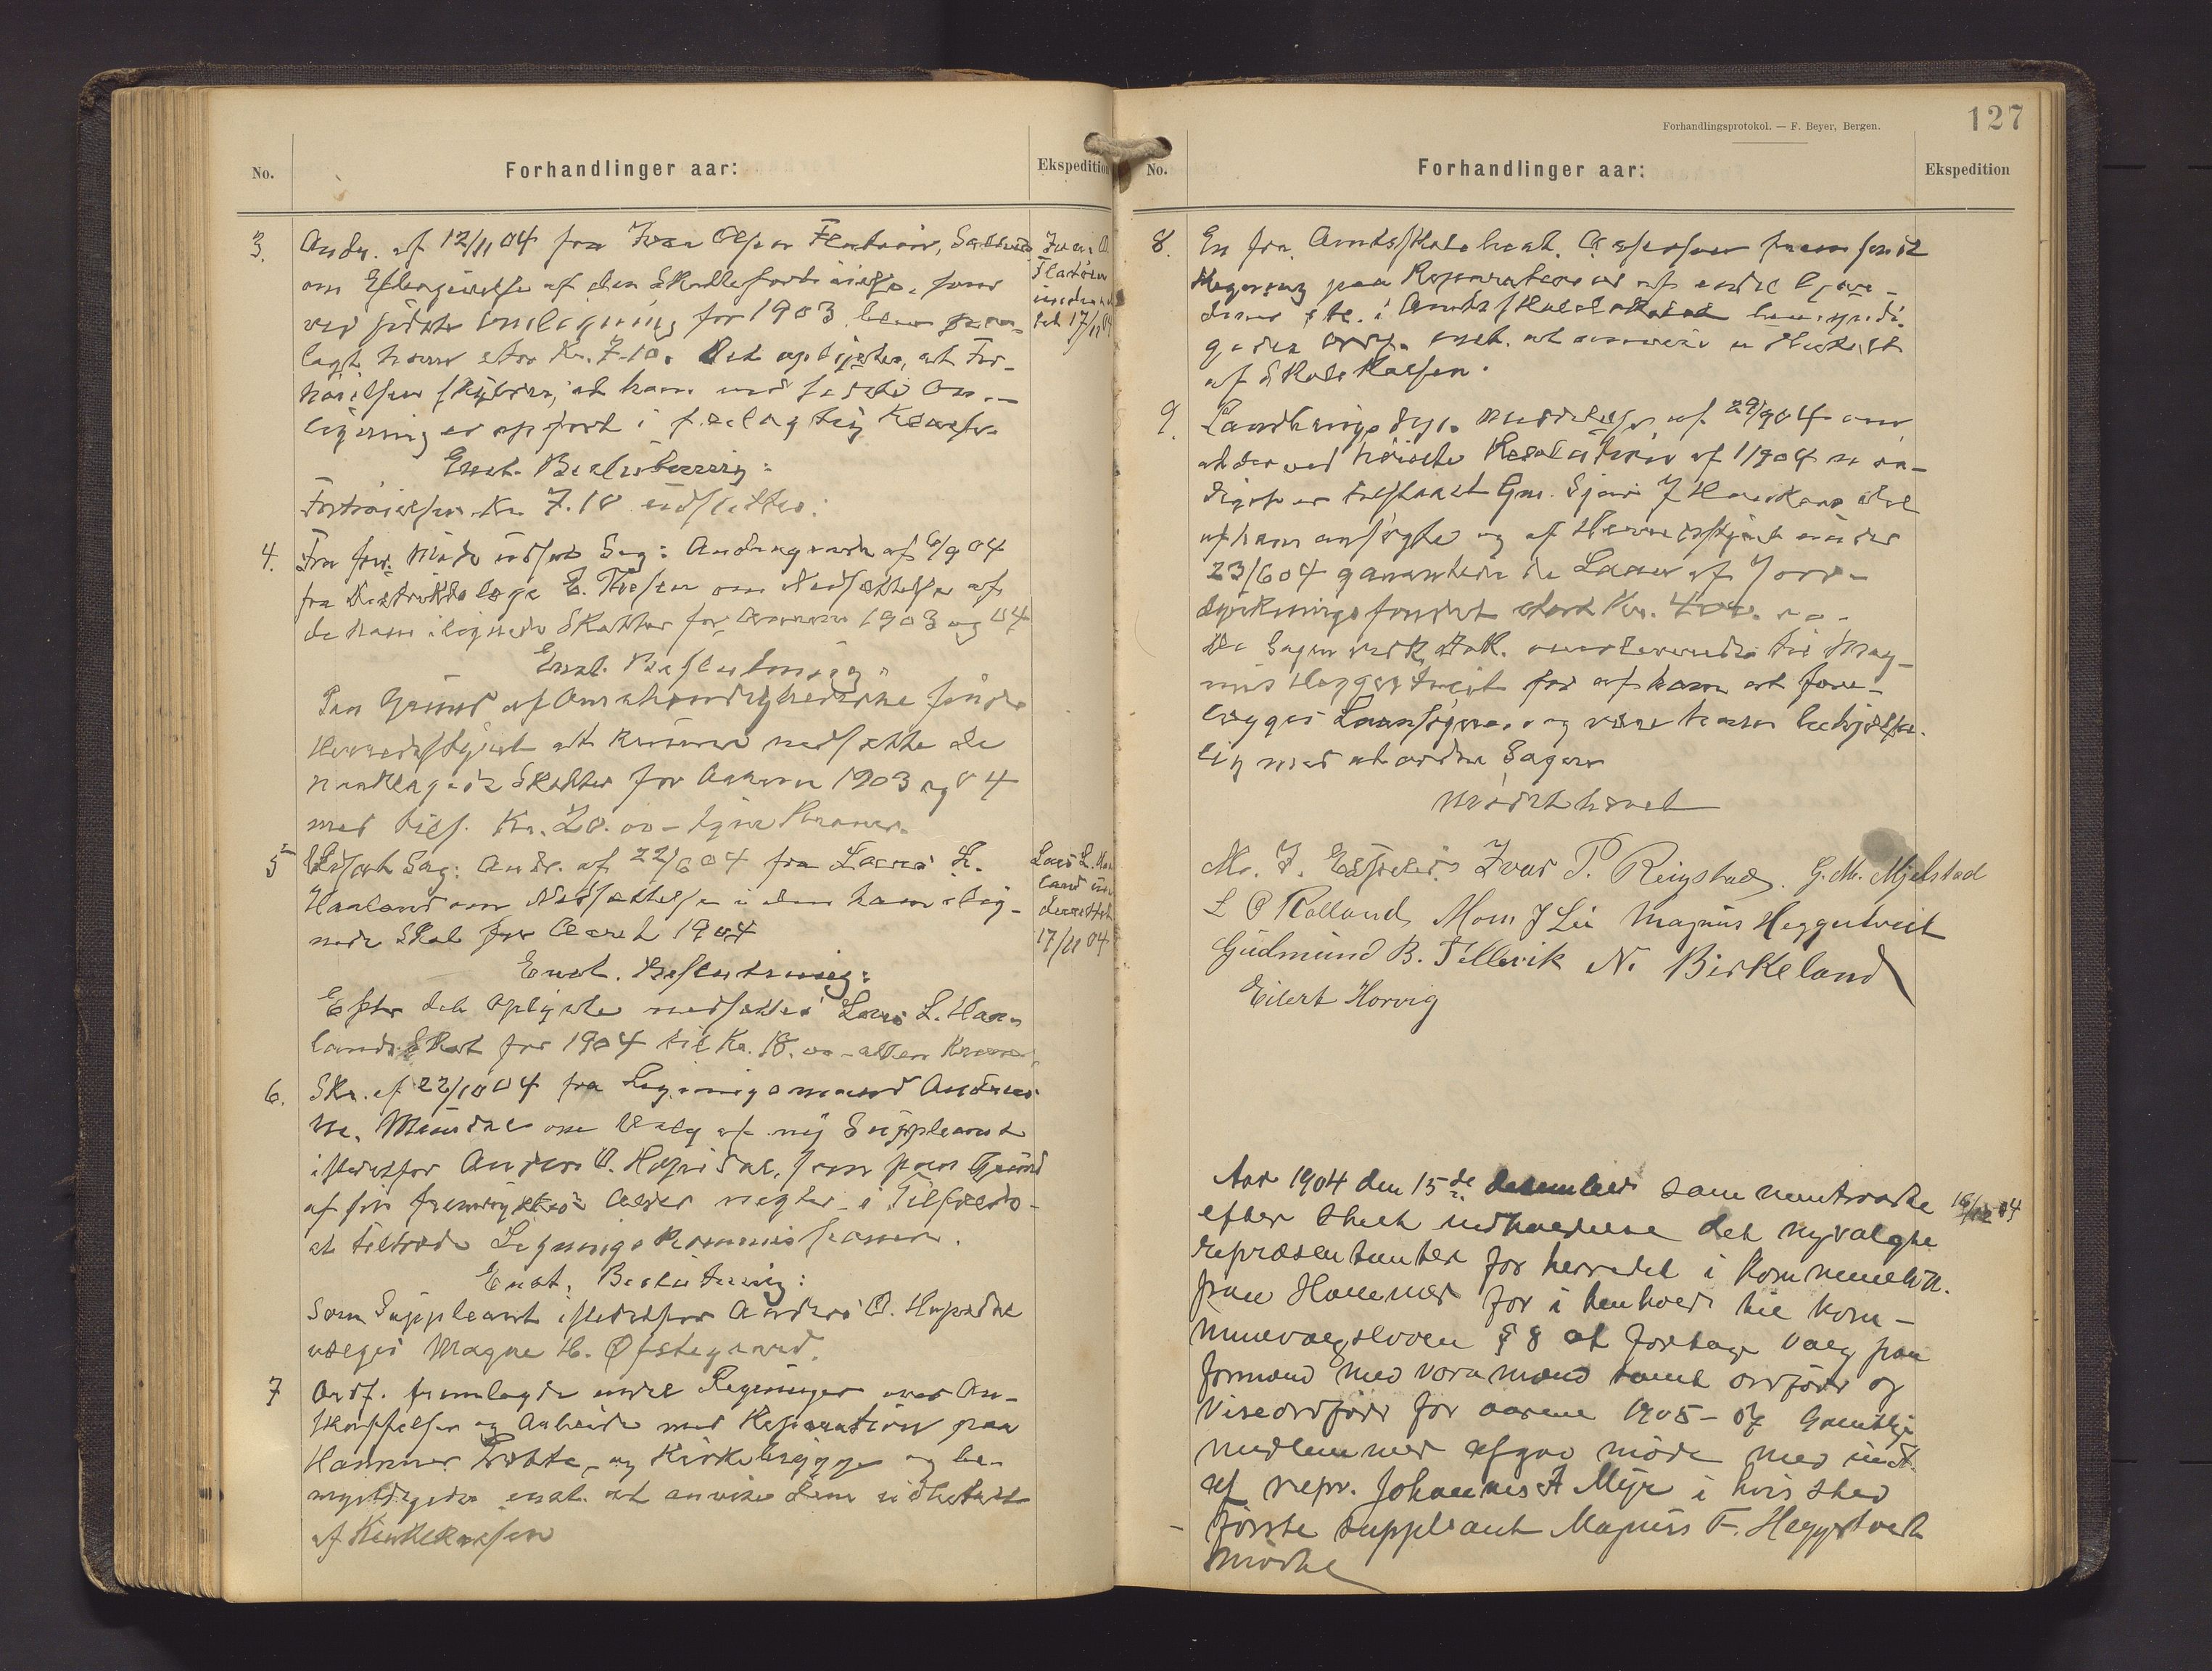 No. Forhandlinger aar: Ekspedition
3. Andr. af 12/11 04 fra Ivar Olsen Flatøen,
om Eftergivelse af den Skatteforhøielse, som
ved sidste Omligning for 1903 blev paa-
lagt ham stor Kr. 7.10. Det oplystes, at For-
høielsen skyldes, at ham ved sidste Om-
ligning er opført i feilagtig Klasse.
Enst. Beslutning:
Forhøielsen Kr. 7.10 udslettes.
Ivar O.
Flatøen
underret-
tet 17/11 04
4. Fra forr. Møde udsat Sag: Andragende af 6/9 04
fra Distriktslæge E. Thesen om Nedsættelse af
de ham ilignede Skatter for Aarene 1903 og 04
Enst. Beslutning:
Paa Grund af Omstændighederne finder
Herredsstyret at kunne nedsætte de
Skatter for Aarene 1903 og 04
med tils. Kr. 20.00 - tyve Kroner.
5 Udsat Sag: Andr. af 22/6 04 fra Lars L.
Haaland om Nedsættelse i den ham ilig-
nede Skat for Aaret 1904
Enst. Beslutning:
Efter det oplyste nedsættes Lars L. Haa-
lands Skat for 1904 til Kr. 18.00 - atten Kroner
Lars L. Haa-
land un-
derrettet
17/11 04
6. Skr. af 22/10 04 fra Ligningsmand Anders
M. Mundal om Valg af ny Suppleant
istedetfor Anders O. Hopsdal, som paa Grund
af sin fremrykkede Alder negter i Tilfælde
at tiltræde Ligningskommissionen.
Enst. Beslutning:
Som Suppleant istedetfor Anders O. Hopsdal
valges Magne H. Øfstegaard.
7 Ordf. fremlagde endel Regninger over An-
skaffelser og Arbeide med Reparation paa
Hammer Præste- og Kirkebrygge og be-
myndigedes enst. at anvise dem udbetalt
af Kirkekassen
Forhandlingsprotokol. — F. Beyer, Bergen.
127
No. Forhandlinger aar: Ekspedition
8. En fra Amtsskolebest. Aasessen fremsendt
Regning paa Reparationer af endel
etc. i Amtsskolelokalet bemyndi-
gedes Ordf. enst. at anvise udbetalt
af Skolekassen.
9. Landbrugsdep. Meddelelse af 29/9 04 om
at der ved høieste Resolution af 1/9 04 naa-
digst er tilstaaet Gm. Sjur J Haukaas det
af ham ansøgte og af Herredsstyret under
23/6 04 garanterede Laan af Jord-
dyrkningsfondet stort Kr. 400.00.
De Sagen vedk. Dok. oversendes til Mag-
nus Heggertveit for af ham at fore-
lægges Laansøgeren og være ham behjælpe-
lig med at ordne Sagen
Mødet hævet
M. J. Eknes Ivar P. Ringstad. G. M. Mjelstad
L O Rolland Mons J Lie Magnus Heggertveit
Gudmund B. Tellevik N. Birkeland
Eilert Horvig
Aar 1904 den 15de december sammentraadte
efter skeet indkaldelse det nyvalgte
repræsentanter for herredet i kommunelok.
paa Hammer for i henhold til kom-
munevalgsloven § 8 at foretage valg paa
formænd med varamænd samt ordfører og
viseordfører for aarene 1905-07 Samtlige
medlemmer afgav møde med undt.
af repr. Johannes A Myr i hvis sted
første suppleant Magnus F. Heggertveit
mødte
16/12 04